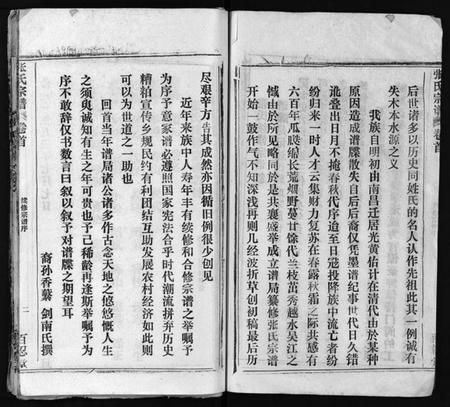 张氏宗谱 卷首
后世诸多以历史同姓氏的名人认作先祖此其一例诚有
失木本水源之义
我族自明初由南昌迁居光黄佑计在清代由於某种
原因造成谱牒散失自后后裔仅凭墨谱纪事世代日久错
讹叠出日月不掩春秋代序迨至日进投降族中流亡者纷
纷归来一时人才云集财力复苏在春露秋霜之际共感有
六百年瓜瓞绵长荒烟野蔓廿馀代兰枝茁秀越水吴江之
憾由於所见略同於是共襄盛举成立谱局纂修张氏宗谱
开始一鼓作气不知深浅再则几经波折草创初稿最后历
尽艰辛方告其成然亦因循旧例很少创见
近年来族中人寿年丰有续修和合修宗谱之举嘱予
为序予意家谱必遵照国家宪法合乎时代潮流拼弃历史
糟粕宣传乡规民约有利团结互助发展农村经济如此则
可以为世道之一助也
回首当年谱局诸公诸多作古念天地之悠悠慨人生
之须臾诚知有生之年可贵也予已稀龄再逢斯举嘱予为
序不敢辞仅书数言曰叙以叙予对谱牒之期望耳
裔孙香蘩 剑南氏撰
张氏宗谱 卷首
续修宗谱序
二
百忍堂